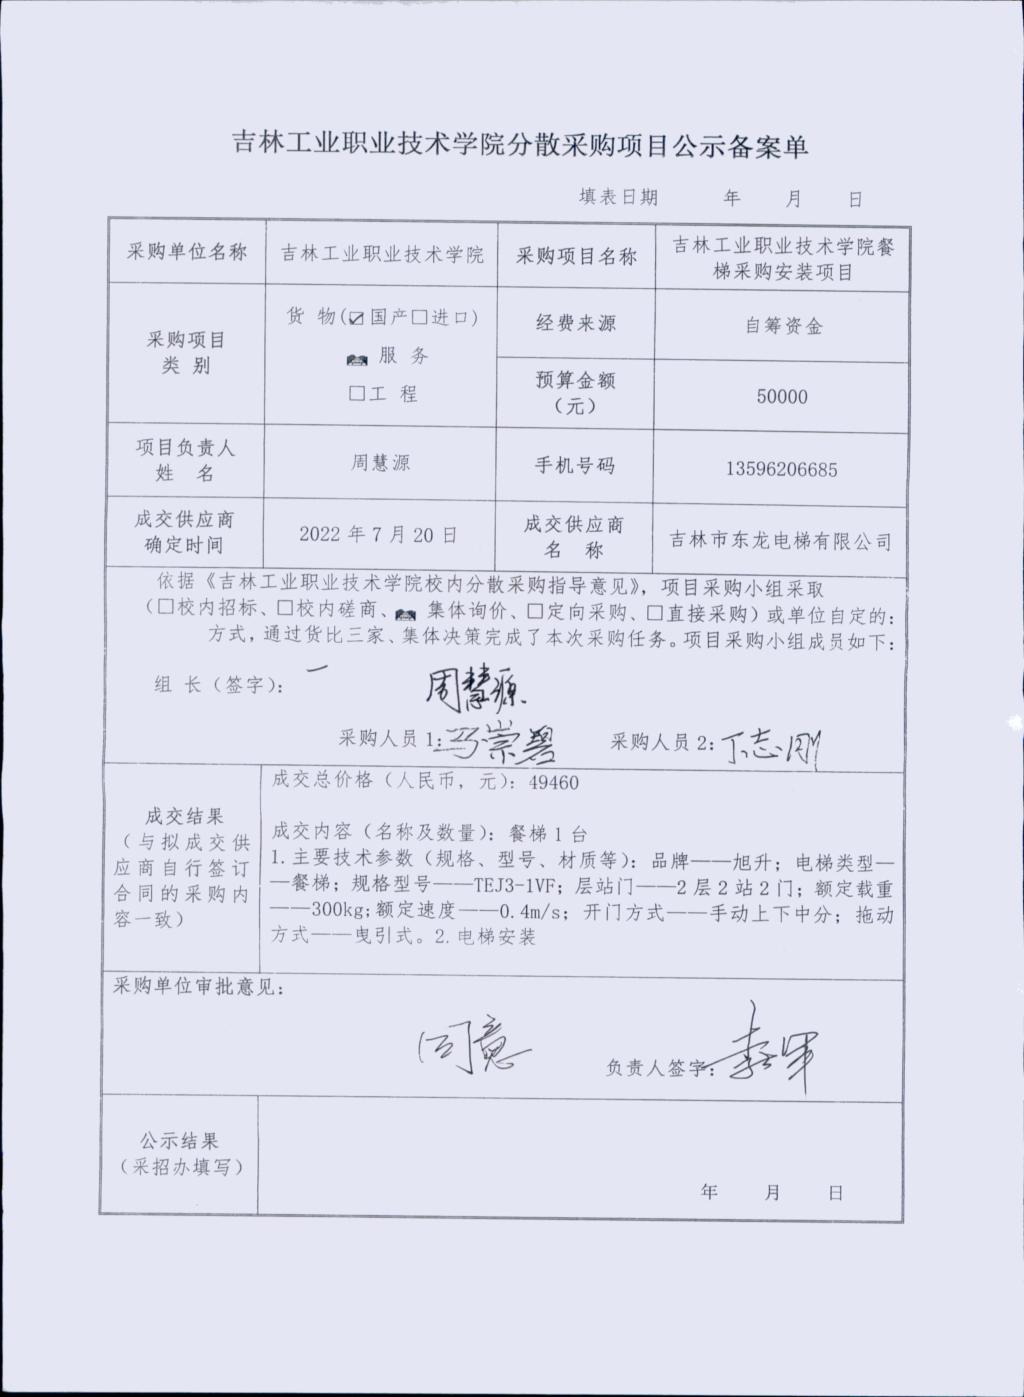 吉林工业职业技术学院分散采购项目公示备案单
填表日期 年 月 日
采购单位名称 吉林工业职业技术学院 采购项目名称 吉林工业职业技术学院餐
梯采购安装项目
采购项目
类 别
货 物(☑国产□进口)
服 务
□工 程
经费来源 自筹资金
预算金额
（元）
50000
项目负责人
姓 名
周慧源 手机号码 13596206685
成交供应商
确定时间
2022 年 7 月 20 日
成交供应商
名 称
吉林市东龙电梯有限公司
依据《吉林工业职业技术学院校内分散采购指导意见》，项目采购小组采取
（□校内招标、□校内磋商、 集体询价、□定向采购、□直接采购）或单位自定的：
方式，通过货比三家、集体决策完成了本次采购任务。项目采购小组成员如下：
组 长（签字）： 周慧源
采购人员 1：马崇碧 采购人员 2：丁志刚
成交结果
（与拟成交供
应商自行签订
合同的采购内
容一致）
成交总价格（人民币，元）：49460
成交内容（名称及数量）：餐梯 1 台
1.主要技术参数（规格、型号、材质等）：品牌——旭升；电梯类型—
—餐梯；规格型号——TEJ3-1VF；层站门——2 层 2 站 2 门；额定载重
——300kg;额定速度——0.4m/s；开门方式——手动上下中分；拖动
方式——曳引式。2.电梯安装
采购单位审批意见：
同意
负责人签字：
公示结果
（采招办填写）
年 月 日